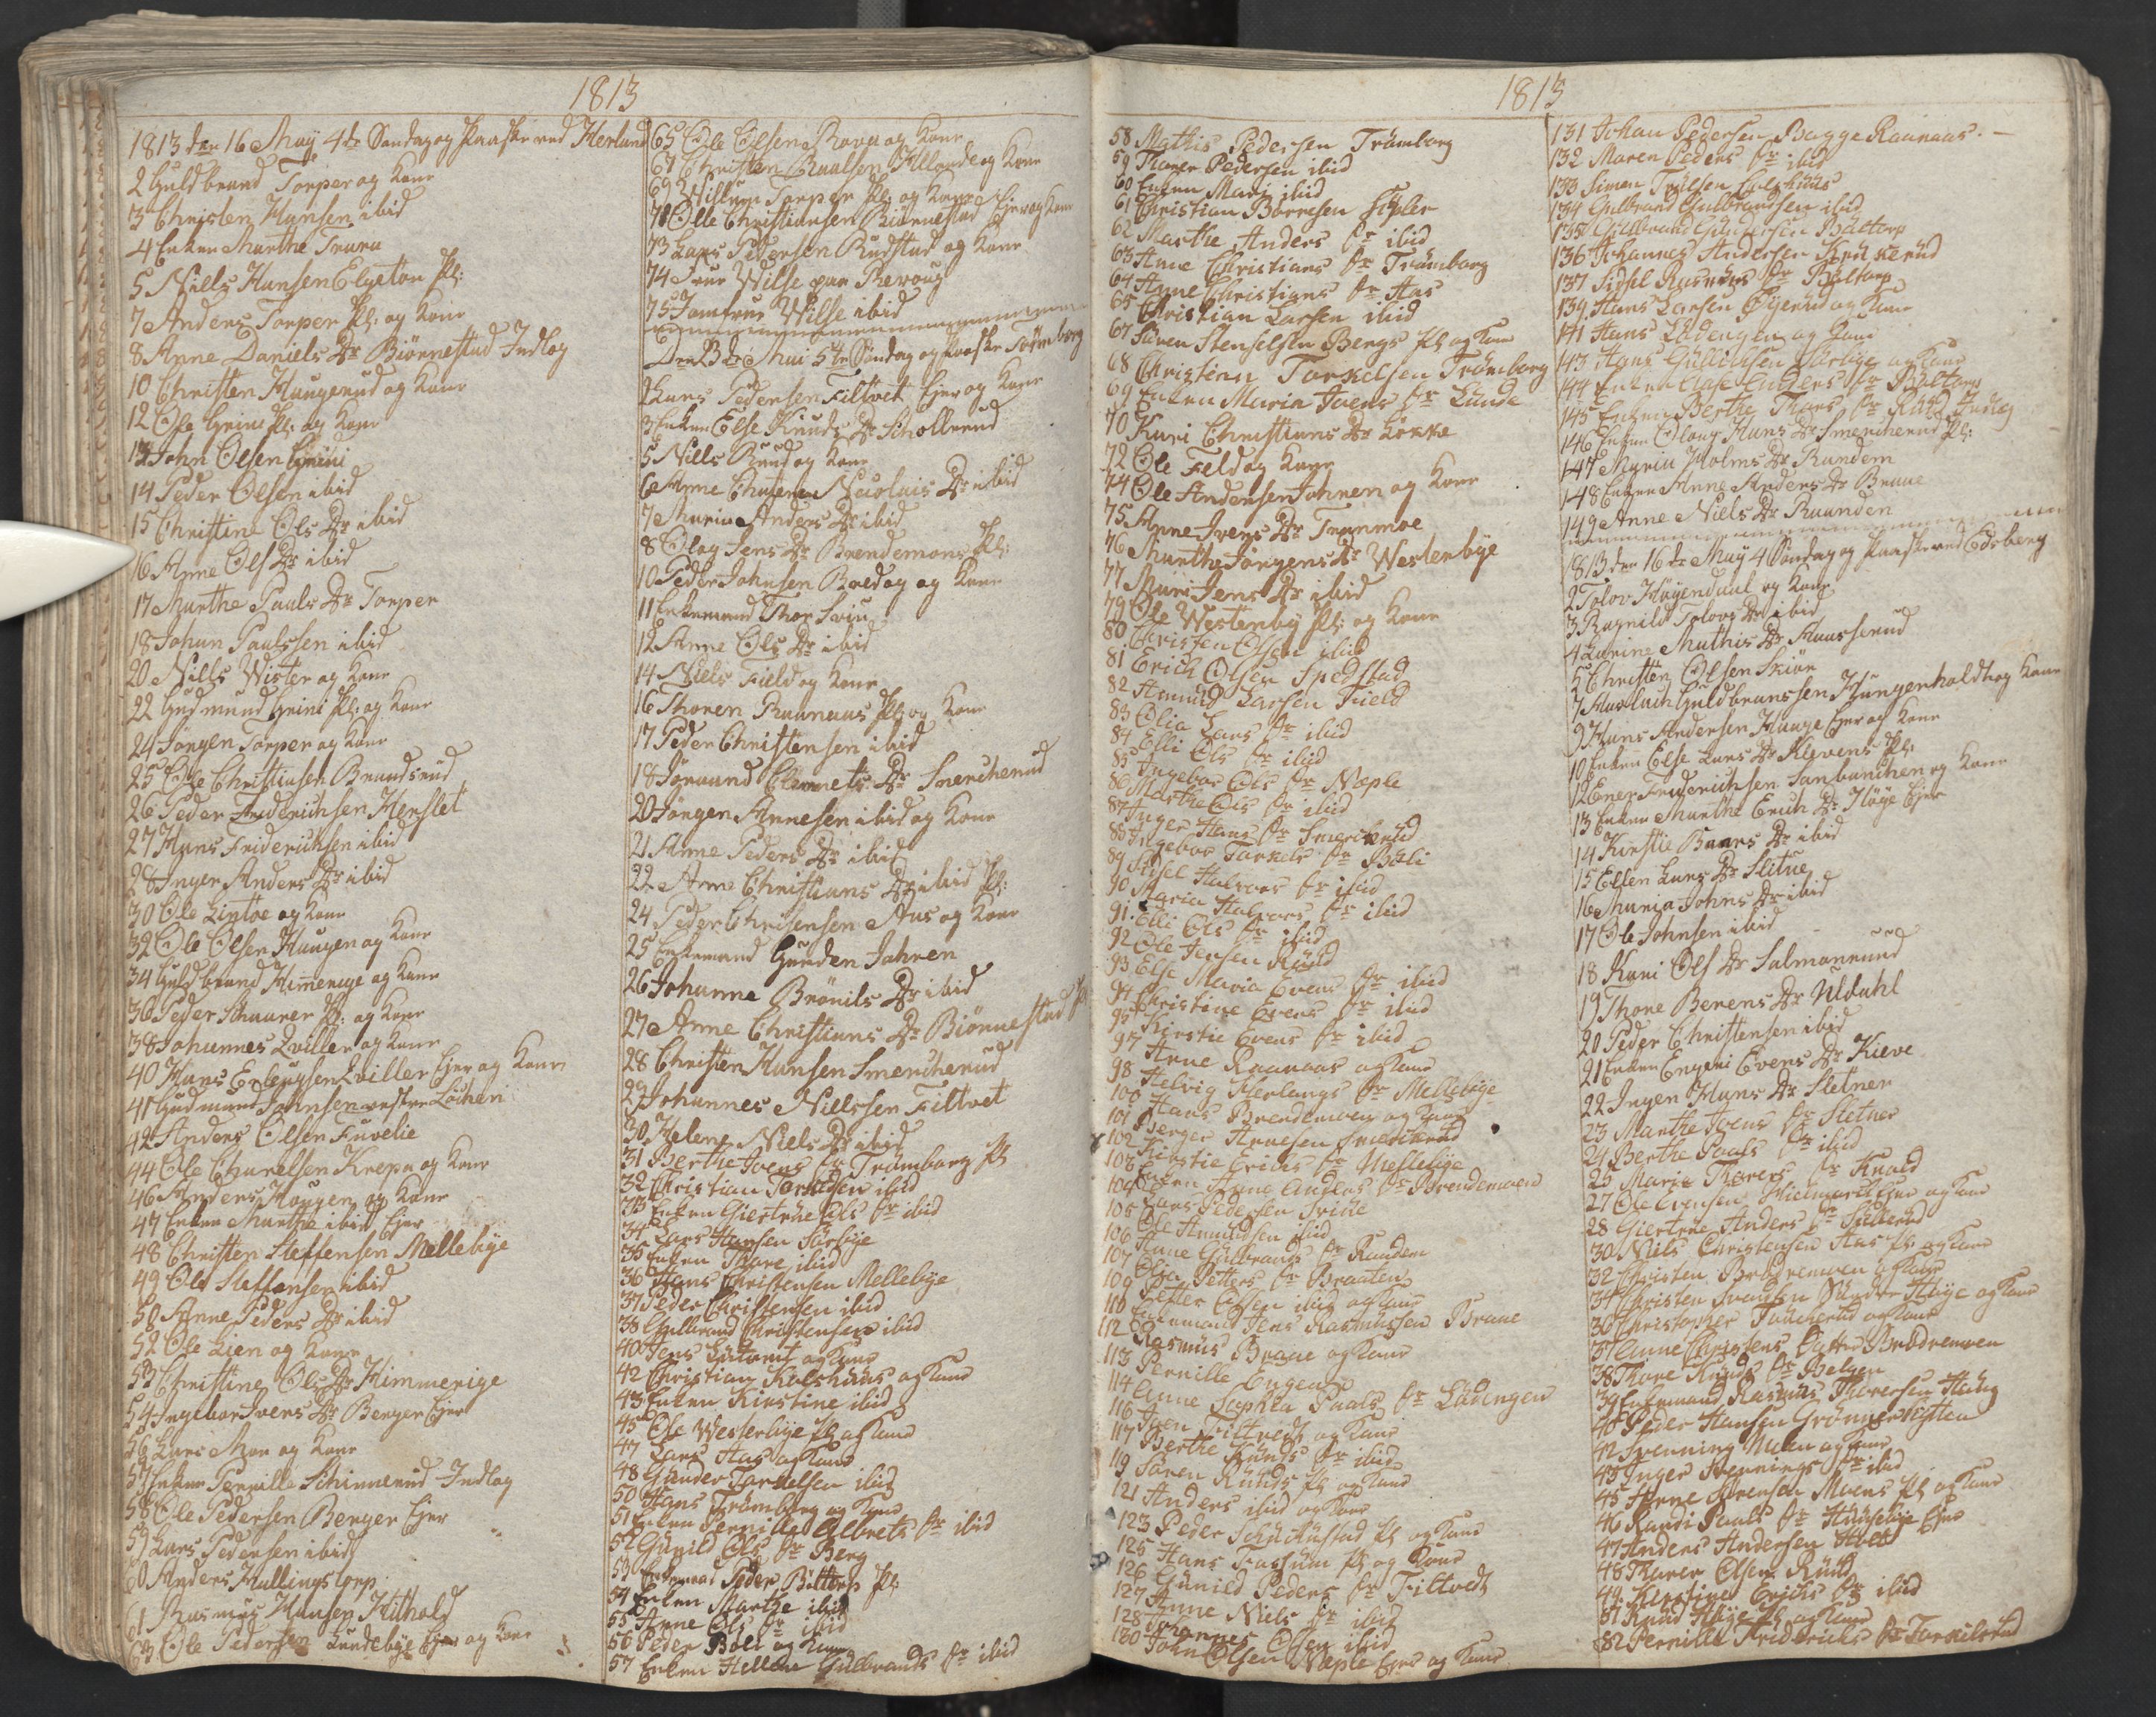 1813
1813 den 16 May 4de Søndag og Paaske ved Herland
2 Guldbrand Torper og Kone
3 Christen Hansen ibid
4 Enken Marthe Trara
5 Nills Hansen Elgeton Pl:
7 Anders Torper Pl: og Kone
8 Anne Daniels Dr Biørnestad Indlog
10 Christen Haugerud og Kone
12 Ole Grini Pl: og Kone
13 John Olsen Grini
14 Peder Olsen ibid
15 Christine Ols Dr ibid
16 Anne Ols Dr ibid
17 Marthe Pauls Dr Torper
18 Johan Paulssen ibid
20 Nills Wister og Kone
22 Gudmund Grini Pl: og Kone
24 Jørgen Torper og Kone
25 Ole Christiansen Brandsrud
26 Peder Friderichsen Herstet
27 Hans Friderichsen ibid
28 Inger Anders Dr ibid
30 Ole Lintoe og Kone
32 Ole Olsen Haugen og Kone
34 Guldbrand Himerige og Kone
36 Peder Skaarer Pl: og Kone
38 Johannes Qviller og Kone
40 Hans Erlengsen Qviller Ejer og Kone
41 Gudmund Johnsen vestre Løchen
42 Anders Olsen Fuvelie
44 Ole Charelsen Krepa og Kone
46 Anders Hougen og Kone
47 Enken Marthe ibid Ejer
48 Christen Steffensen Mellebye
49 Ole Steffensen ibid
50 Anne Peders Dr ibid
52 Ole Lien og Kone
53 Christine Ols Dr Himmerige
54 Ingebor Ivers Dr Berger Ejer
56 Lars Moe og Kone
57 Enken Pernille Schinnerud Indlog
58 Ole Pedersen Berger Ejer
59 Lars Pedersen ibid
60 Anders Hallingstorp
61 Rasmus Hansen Hithold
63 Ole Pedersen Lundebye Ejer og Kone
65 Ole Olsen Rova og Kone
67 Christen Paulsen Hillonde og Kone
69 Willum Torper Pl: og Kone
71 Olle Christiansen Biørnestad Ejer og Kone
73 Lars Pedersen Rudstad og Kone
74 Frue Wilse paa Revoug
75 Jomfrue Wilse ibid
Den 23de Mai 5te Søndag og Paaske Trømborg
2 Lars Pedersen Filtvet Ejer og Kone
3 Enken Else Knuds Dr Schollerud
5 Nills Ruud og Kone
6 Anne Christine Nicolais Dr ibid
7 Maria Anders Dr ibid
8 Olog Jens Dr Brendemoen Pl:
10 Peder Johnsen Boedog og Kone
11 Enkemand Thor Sviu
12 Anne Ols Dr ibid
14 Niels Field og Kone
16 Thoren Raanaas Pl: og Kone
17 Peder Christensen ibid
18 Jøraand Clemets Dr Smercherud
20 Jørgen Arnesen ibid og Kone
21 Anne Peders Dr ibid
22 Anne Christians Dr ibid Pl:
24 Peder Chrisensen Aas og Kone
25 Enkemand Gunden Jahren
26 Johanne Brønils Dr ibid
27 Anne Christians Dr Biørnestad Pl
28 Christen Hansen Smercherud
29 Johannes Nielssen Filtvet
30 Helene Niels Dr ibid
31 Berthe Joens Dr Trømborg Pl
32 Christian Torkelsen ibid
33 Enken Giertrue Ols Dr ibid
34 Lars Hansen Sørbye
35 Enken Thore ibid
36 Hans Christensen Mellebye
37 Peder Christensen ibid
38 Gulbrand Christensen ibid
40 Jens og Kone
42 Christian Kulshuus og Kone
43 Enken Kirstine ibid
45 Ole Westerbye Pl og Kone
47 Lars Aas og Kone
48 Gunder Torkelsen ibid
50 Hans Trømborg og Kone
51 Enken Pernille Albrets Dr ibid
52 Gunild Ols Dr Berg
53 Enkemand Peder Biltorp Pl:
54 Enken Marthe ibid
55 Anne Ols Dr ibid
56 Peder Boli og Kone
57 Enken Hellene Gulbrands Dr ibid
1813
58 Mathis Pedersen Trømborg
59 Thorer Pedersen ibid
60 Enken Mari ibid
61 Christian Børresen
62 Marthe Anders Dr ibid
63 Anne Christians Dr Trømborg
64 Anne Christians Dr Aas
65 Christian Larsen ibid
67 Søren Stenselsen Bergs Pl og Kone
68 Christian Torkelsen Trømborg
69 Enken Maria Joens Dr Lunde
70 Kari Christians Dr Løkke
72 Ole Feld og Kone
74 Ole Andersen Jahren og Kone
75 Anne Ivers Dr Tranmoe
76 Marthe Jørgens Dr Westerbye
77 Mari Jens Dr ibid
79 Ole Westerby Pl: og Kone
80 Christen Olsen ibid
81 Erich Olsen Spedstad
82 Amund Larsen Field
83 Olia Lars Dr ibid
84 Elli Ols Dr ibid
85 Ingebor Ols Dr Næple
86 Marthe Ols Dr ibid
87 Inger Hans Dr Smerckerud
88 Ingebor Torkels Dr Boli
89 Sidsel Halvors Dr ibid
90 Maria Halvors Dr ibid
91 Elli Ols Dr ibid
92 Ole Jensen Ruud
93 Else Maria Evens Dr ibid
94 Christine Evens Dr ibid
95 Kirstie Evens Dr ibid
97 Arne Raanaas og Kone
98 Helvig Herlaugs Dr Mellebye
100 Hans Brendemoen og Kone
101 Berger Arnesen Smerckerud
102 Kirstie Erichs Dr Mellebye
104 Enken Anne Anders Dr Brendemoen
105 Lars Pedersen Sviue
106 Ole Amundsen ibid
107 Anne Gulbrands Dr Rundem
108 Olia Petters Dr Braaten
109 Petter Olsen ibid og Kone
110 Enkemand Jens Rasmussen Braae
112 Rasmus Braae og Kone
113 Pernille Engen
114 Anne Sophia Pauls Dr Lødengen
116 Joen Filtvedt og Kone
117 Berthe Knuds Dr ibid
119 Søren Ruuds Pl og Kone
121 Anders ibid og Kone
123 Peder Pl og Kone
125 Hans Fossum Pl og Kone
126 Gunild Peders Dr Filtvedt
127 Anne Niels Dr ibid
128 Johannes Olsen ibid
130 John Olsen Næple Ejer og Kone
131 Johan Pedersen Bagge Raanaas.
132 Maren Peders Dr ibid
133 Simen Truelsen Kulshuus
134 Gulbrand Gulbrandsen ibid
135 Gulbrand Gundersen Biltorp
136 Johannes Andersen
137 Sidsel Rasmus Dr Biltorp
139 Hans Larsen Øyerud og Kone
141 Hans Lødengen og Kone
143 Hans Gullichsen og Kone
144 Enken Anders Dr Biltorp
145 Enken Berthe Thors Dr Ruud Indlog
146 Enken Oloug Hans Dr Smercherud Pl:
147 Maria Holms Dr Rundem
148 Enken Anne Anders Dr Braae
149 Anne Niels Dr Raanden
1813 den 16de May 4 Søndag og Paaske ved Edsberg
2 Tolov Høyendaal og Kone
3 Ragnild Tolovs Dr ibid
4 Karine Mathis Dr Haasserud
5 Christen Olsen Skiør
7 Aslach Guldbranssen Hungenholdt og Kone
9 Hans Andersen Hauge Ejer og Kone
10 Enken Else Lars Dr Klevens Pl:
12 Ener Friderichsen Sanbunchen og Kone
13 Enken Marthe Erich Dr Høye Ejer
14 Kirstie Baars Dr ibid
15 Ellen Lars Dr Slitue
16 Maria Johns Dr ibid
17 Ole Johnsen ibid
18 Kari Ols Dr Salmonrud
19 Thone Berens Dr Uldahl
20 Peder Christensen ibid
21 Enken Engeri Evens Dr Kieve
22 Ingen Hans Dr Sletner
23 Marthe Joens Dr Sletner
24 Berthe Pauls Dr ibid
25 Marie Thorers Dr Knold
27 Ole Evensen Hielmark Ejer og Kone
28 Giertrue Anders Dr
30 Niels Christensen Aas Pl og Kone
32 Christen Brødremoen og Kone
34 Christen Svendsen Søndre Høye og Kone
36 Christopher og Kone
37 Anne Christens Datter Brødremoen
38 Thore Knuds Dr Belgen
39 Enkemand Rasmus Thoresen Haug
40 Peder Hansen Grønnerigsten
42 Svenning Melen og Kone
43 Inger Svennings Dr ibid
45 Arne Sørensen Moens Pl og Kone
46 Randi Pauls Dr Huusebye Ejer
47 Anders Andersen Holt
48 Thorer Olsen Ruud
49 Kirstine Erichs Dr ibid
51 Knud Høye Pl og Kone
52 Pernille Friderichs Dr Torkilsrud